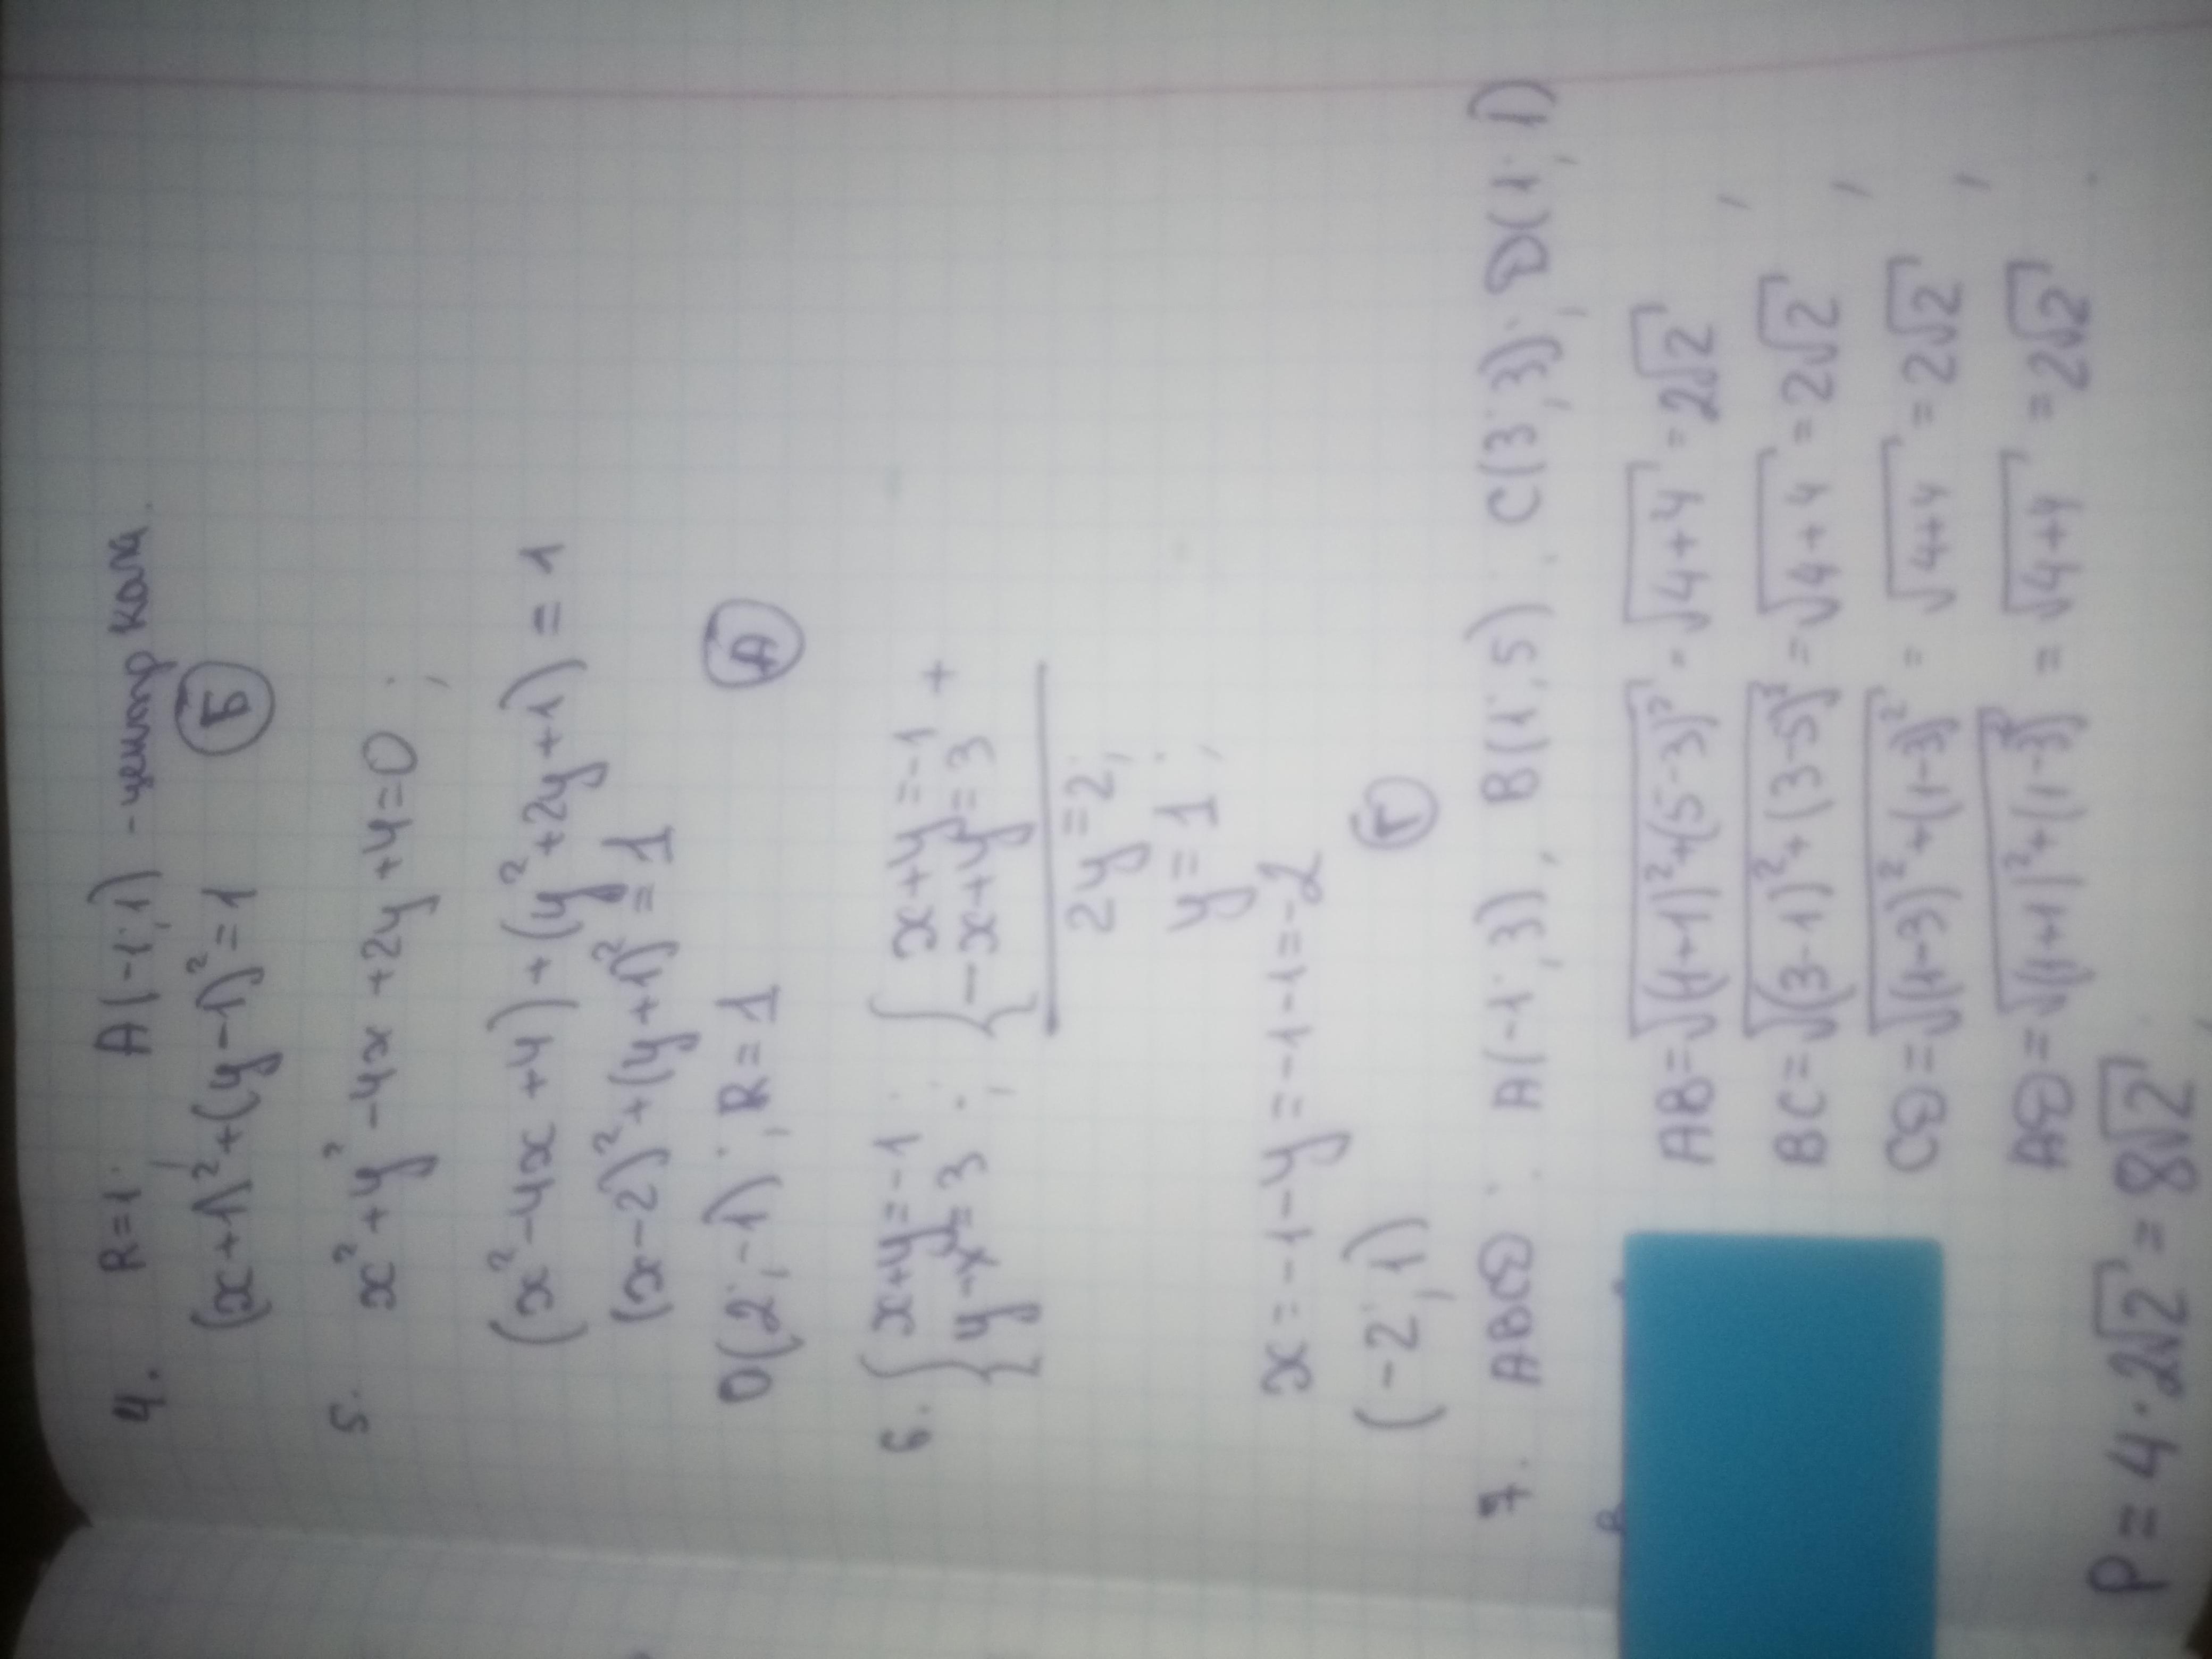 4. R=1; A(-1; 1) - центр кола.
(x+1)²+(y-1)²=1 Б
5. x²+y²-4x+2y+4=0;
(x²-4x+4)+(y²+2y+1)=1
(x-2)²+(y+1)²=1
O(2;-1); R=1 А
6. {x+y=-1; {x+y=-1 +
{y-x=3; {-x+y=3
2y=2;
y=1;
x=-1-y=-1-1=-2
(-2; 1) Г
7. ABCD: A(-1; 3), B(1; 5), C(3; 3); D(1; 1)
AB=√(1+1)²+(5-3)²=√4+4=2√2,
BC=√(3-1)²+(3-5)²=√4+4=2√2,
CD=√(1-3)²+(1-3)²=√4+4=2√2,
AD=√(1+1)²+(1-3)²=√4+4=2√2.
P=4·2√2=8√2